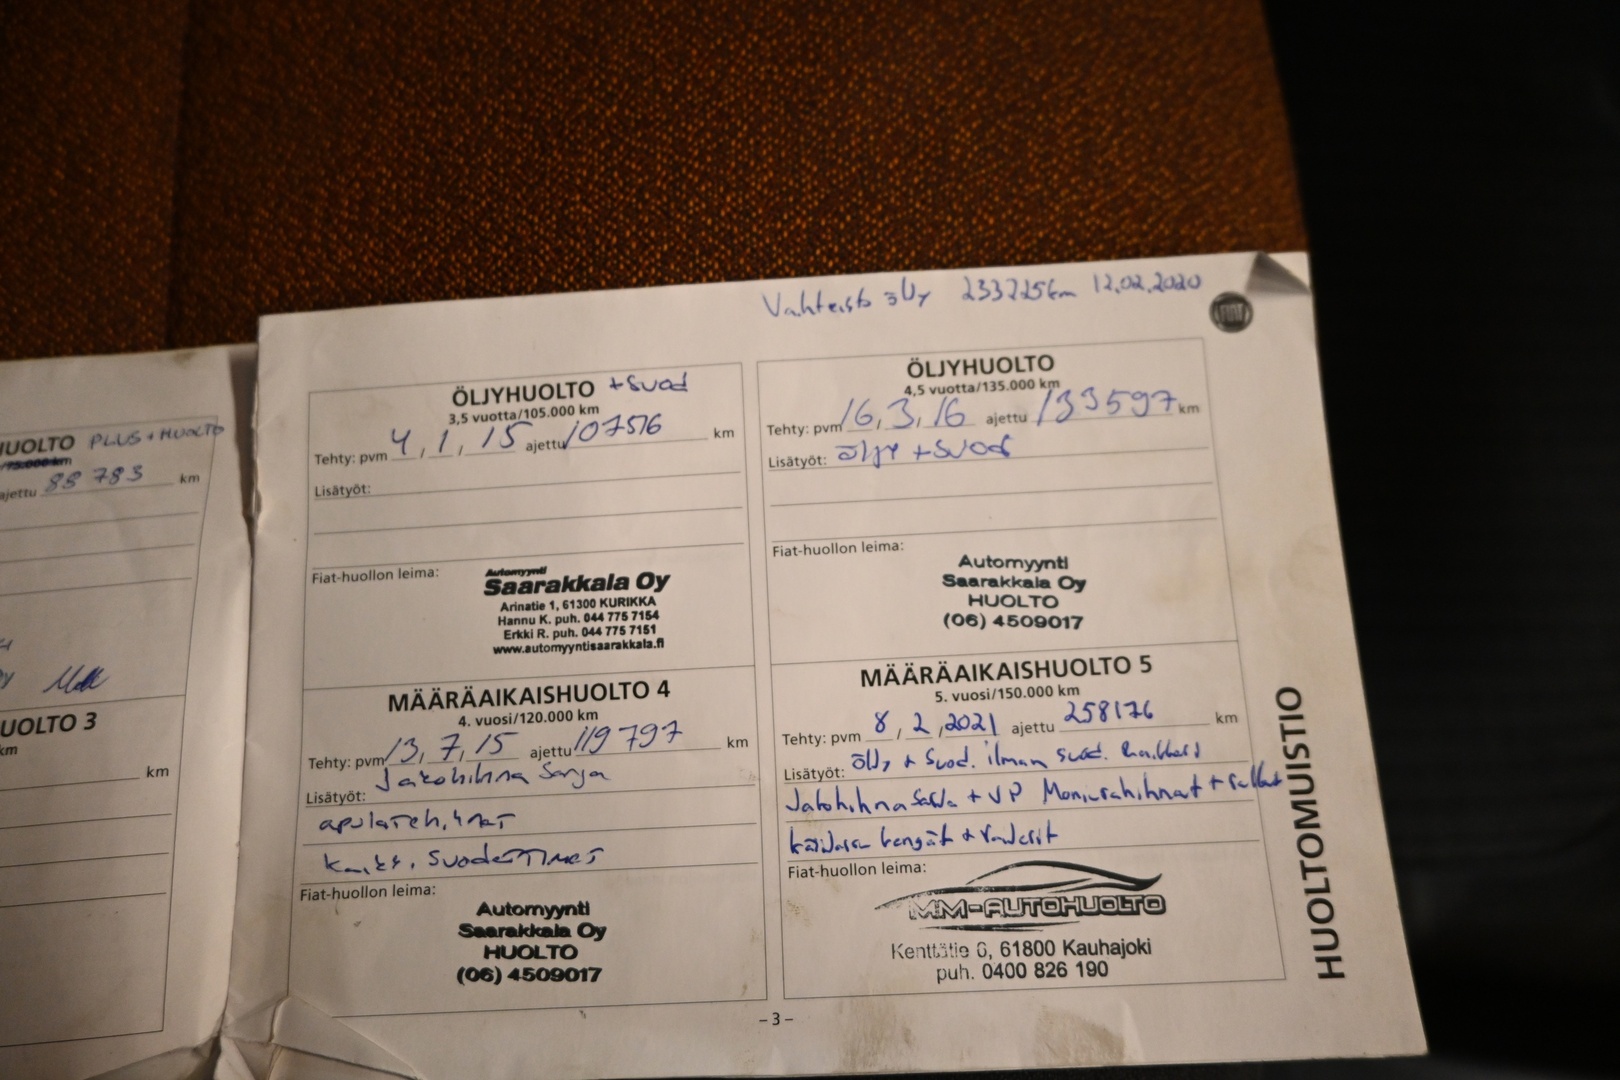 Vaihteisto öljy 233225km 12.02.2020
FIAT
HUOLTO PLUS + HUOLTO
/75.000 km
ajettu 88 783 km
UOLTO 3
km
km
ÖLJYHUOLTO + suod
3,5 vuotta/105.000 km
Tehty: pvm 4, 1, 15 ajettu 107516 km
Lisätyöt:
Fiat-huollon leima:
Automyynti
Saarakkala Oy
Arinatie 1, 61300 KURIKKA
Hannu K. puh. 044 775 7154
Erkki R. puh. 044 775 7151
www.automyyntisaarakkala.fi
ÖLJYHUOLTO
4,5 vuotta/135.000 km
Tehty: pvm 16, 3, 16 ajettu 133597 km
Lisätyöt: öljy + suod
Fiat-huollon leima:
Automyynti
Saarakkala Oy
HUOLTO
(06) 4509017
MÄÄRÄAIKAISHUOLTO 4
4. vuosi/120.000 km
Tehty: pvm 13, 7, 15 ajettu 119 797 km
Jakohihna Sarja
Lisätyöt:
apulaiteh,hnat
Kaikk. Suodattimet
Fiat-huollon leima:
Automyynti
Saarakkala Oy
HUOLTO
(06) 4509017
MÄÄRÄAIKAISHUOLTO 5
5. vuosi/150.000 km
Tehty: pvm 8, 2, 2021 ajettu 258176 km
Lisätyöt: öljy + suod. ilman suod.
Jakohihnasarja + VP Moniurahihnat + rullat
kengät +
Fiat-huollon leima:
MM-AUTOHUOLTO
Kenttätie 6, 61800 Kauhajoki
puh. 0400 826 190
HUOLTOMUISTIO
– 3 –